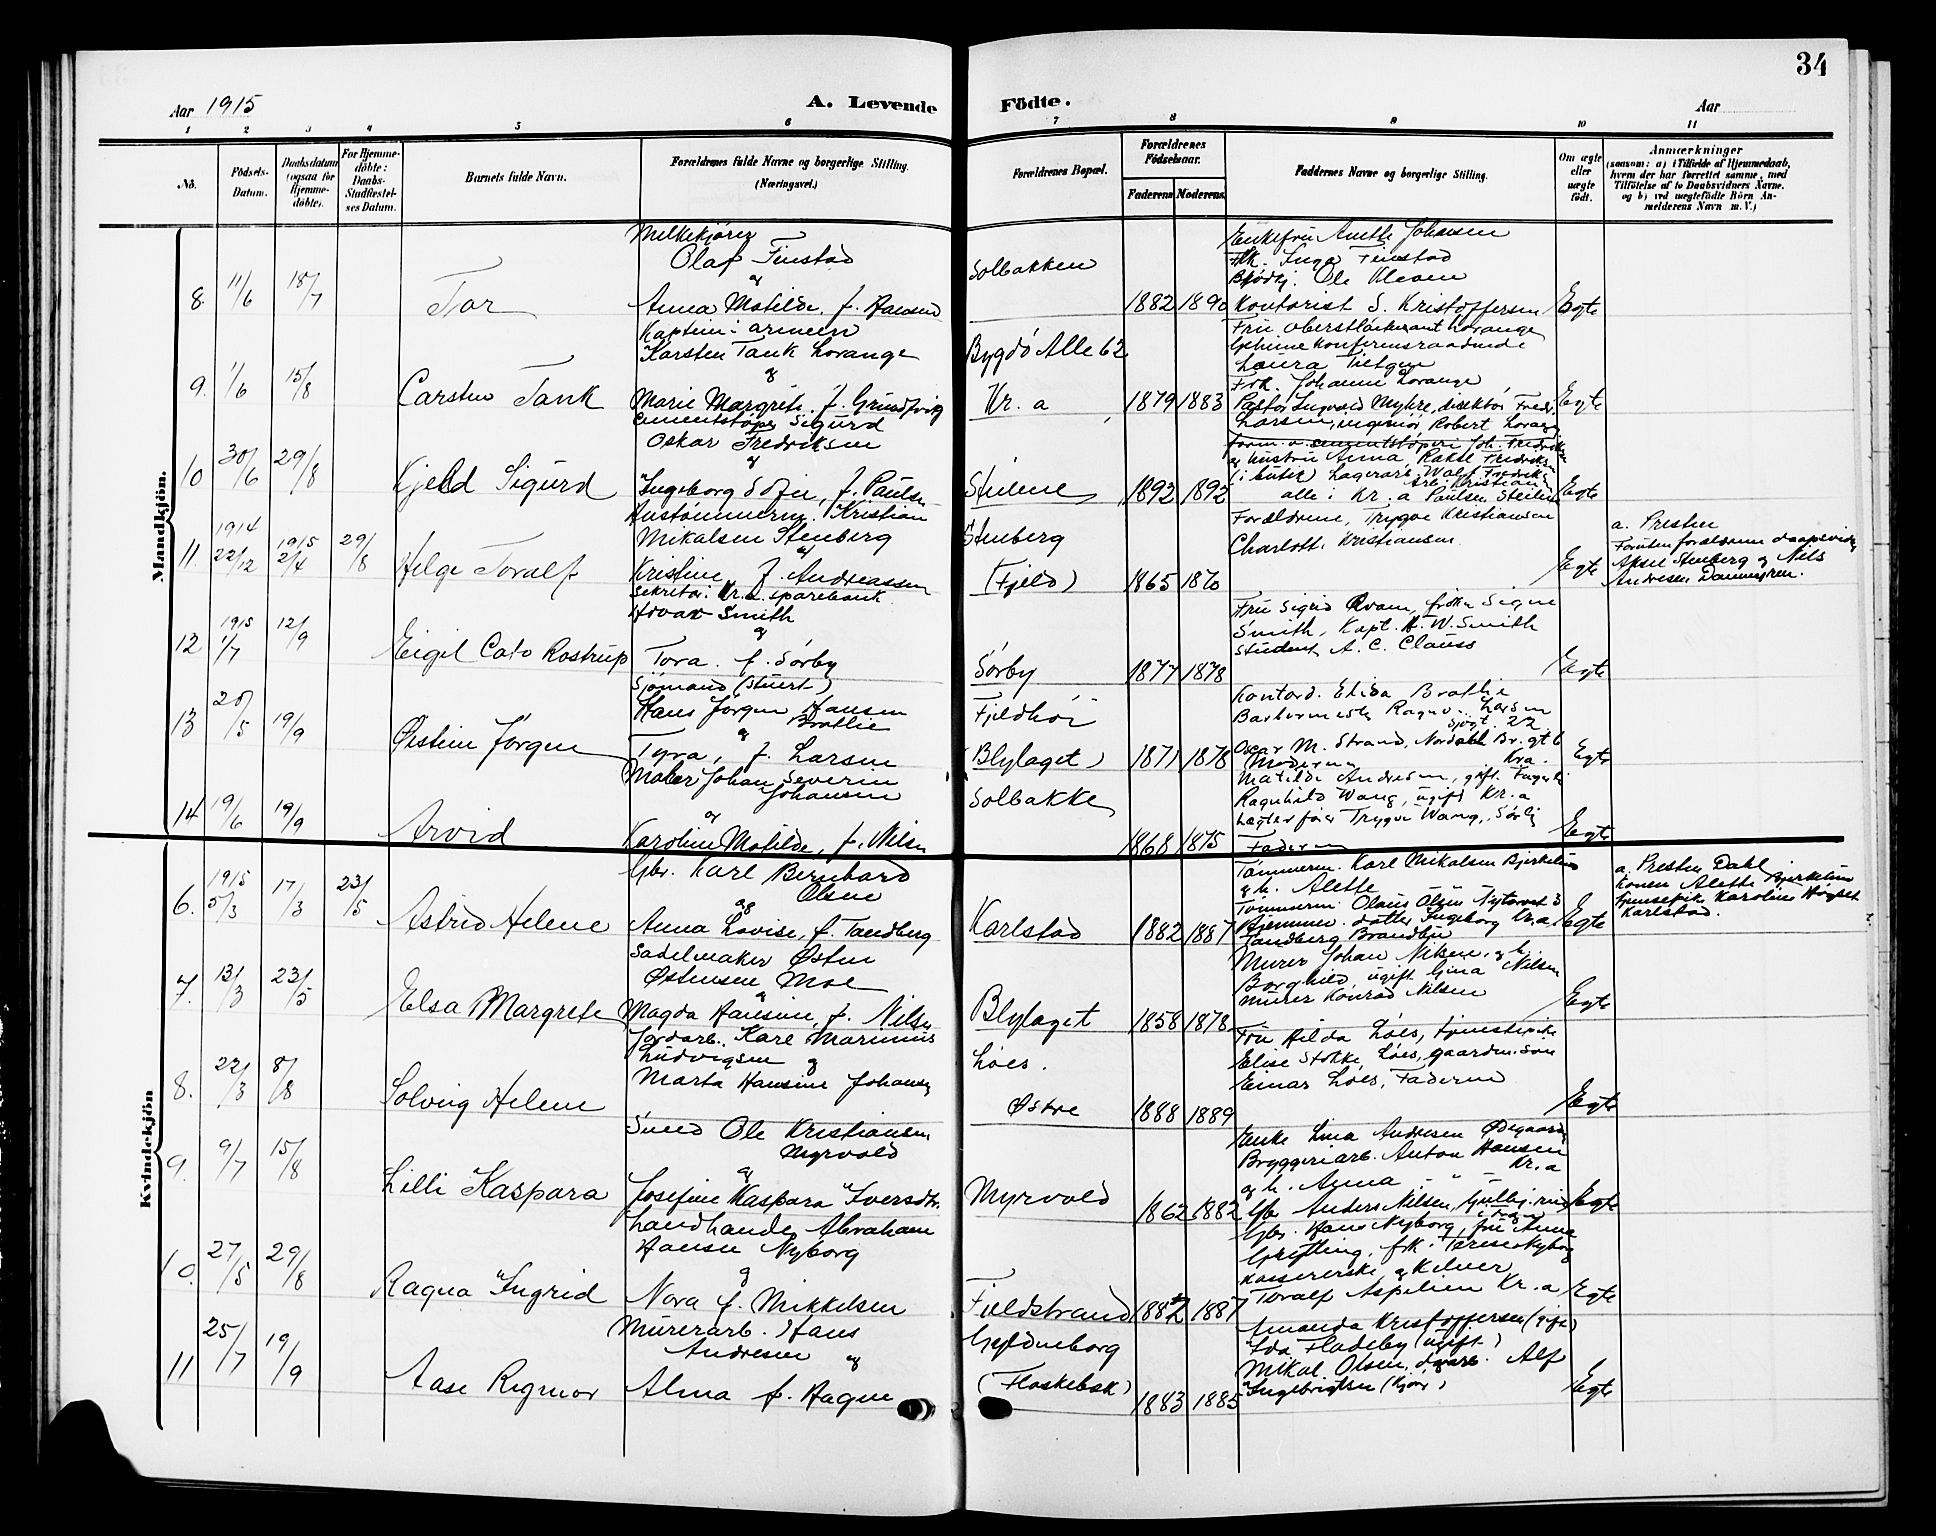 34
Aar 1915
A. Levende Födte.
Aar
1 2 3 4 5 6 7 8 9 10 11
No.
Födsels-Datum.
Daabsdatum (ogsaa for Hjemmedöbte).
For Hjemmedöbte: Daabs-Stadfæstelses Datum.
Barnets fulde Navn.
Forældrenes fulde Navne og borgerlige Stilling. (Næringsvei.)
Forældrenes Bopæl.
Forældrenes Födselsaar.
Faderens Moderens.
Faddernes Navne og borgerlige Stilling.
Om ægte eller uægte födt.
Anmærkninger
(saasom: a) i Tilfælde af Hjemmedaab, hvem der har forrettet samme, med Tilföielse af to Daabsvidners Navne. og b) ved uægtefödte Börn Anmelderens Navn m. V.)
Mandkjön.
8. 11/6 18/7 Tor
Melkekjører
Olaf Finstad
og
Anna Matilde, f. Hansen
Solbakken
1882 1890
Enkefru Anette Johansen
Frk. Inga Finstad
Ole Kleven
Kontorist S. Kristoffersen
Egte
9. 1/6 15/8 Carsten Tank
Kaptein i armeen
Karsten Tank Lorange
og
Marie Margrete, f. Grundtvig
Bygdö Alle 62
Kr. a
1879 1883
Fru Oberstløitenant Lorange
Laura Tietgen
Frk. Johanne Lorange
Pastor Ingvald Myhre, direktör Fredr.
Larsen, ingeniör Robert Lorange
Egte
10 30/6 29/8 Kjeld Sigurd
Cementstøper Sigurd
Oskar Fredriksen
og
Ingeborg Sofie, f. Paulsen
Steilene
1892 1892
form. v. cementstøperi Joh. Fredriksen
og hustru Anna, Rakel Fredriksen
(i butik) Lagerarb. Walf. Fredriks.
arb. Kristian
alle i Kr. a Paulsen Steilene
Egte
11. 1914 22/12 1915 2/4 29/8 Helge Toralf
Anstømmerm. Kristian
Mikalsen Stenberg
og
Kristine, f. Andreassen
Stenberg
(Fjeld)
1865 1870
Forældrene, Trygve Kristiansen
Charlotte Kristiansen
Egte
a. Presten
Foruten forældrene daapsvidn.
Aksel Stenberg og Nils
Andresen Dammegren.
12 1915 1/7 12/9 Eigil Cato Rostrup
Sekretær i Kr.a sparebank
Hovar Smith
og
Tora. f. Sørby
Sørby
1877 1878
Fru Sigrid Qvam, frøken Signe
Smith, Kapt. H. W. Smith
student A. C. Clauss
Egte
13 20/5 19/9 Øistein Jørgen
Sjømand (Stuert)
Hans Jørgen Hansen
Brattlie
og
Tyra, f. Larsen
Fjeldhöi
(Blylaget)
1871 1878
Kontord. Elida Brattlie
Barbermester Ragnv. Larsen
22
Oscar M. Strand, Nordahl Br. gt 6
Moderen Kra.
Egte
14 19/6 19/9 Arvid
Maler Johan Severin
Johansen
og
Karoline Matilde, f. Nilsen
Solbakke
1868 1875
Matilde Andresen, gift.
Ragnhild Wang, ugift Kr. a
Trygve Wang, Sörli
Faderen
Egte
Kvindekjön
6. 1915 5/3 17/3 23/5 Astrid Helene
Gbr. Karl Bernhard
Olsen
og
Anna Lovise, f. Tandberg
Karlstad
1882 1887
Tömmerm. Karl Mikalsen Bjerkelien
og h. Alette
Tömmerm. Olaus Olsen Nytorvet 3
Hjemmev. datter Ingeborg Kr.a
Tandberg Brandbu
Egte
a. Presten Dahl
Konen Alette Bjerkelien
tjenestepike Karoline
Karlstad.
7. 13/3 23/5 Elsa Margrete
Sadelmaker Østen
Østensen Moe
og
Magda Hansine, f. Nilsen
Blylaget
1858 1878
Murer Johan Nilsen og h.
Borghild, ugift Gina Nilsen
murer Konrad Nilsen
Egte
8. 22/3 8/8 Solveig Helene
Jordarb. Karl Marinius
Ludvigsen og
Marta Hansine Johansen
Löes.
Østre
1888 1889
Fru Hilda Löes, tjenestepike
Elise Stokke, Löes, gaardm.søn
Einar Löes, Faderen
Egte
9. 9/7 15/8 Lilli Kaspara
Smed Ole Kristiansen
Myrvold
og
Josefine Kaspara Iversdtr.
Myrvold
1862 1882
Enke Lina Andresen Ødegaard
Bryggeriarb. Anton Hansen
og h. Anna Kr.a
Gbr. Anders Nilsen,
Egte
10. 27/5 29/8 Ragna Ingrid
Landhandler Abraham
Hansen Nyborg
og
Nora f. Mikkelsen
Fjeldstrand
1882 1887
Gbr. Hans Nyborg, fru Anna
Gryting, frk. Terese Nyborg
Kassererske og Kelner
Toralf Aspelien Kr. a
Egte
11 25/7 19/9 Aase Rigmor
Murerarb. Hans
Andresen og
Alma f. Hagen
Gyldneborg
(Flaskebæk)
1883 1885
Amanda Kristoffersen (gift)
Ida Fladeby (ugift)
Mikal Olsen, dgarb. Alf
Ingebrigtsen
Egte